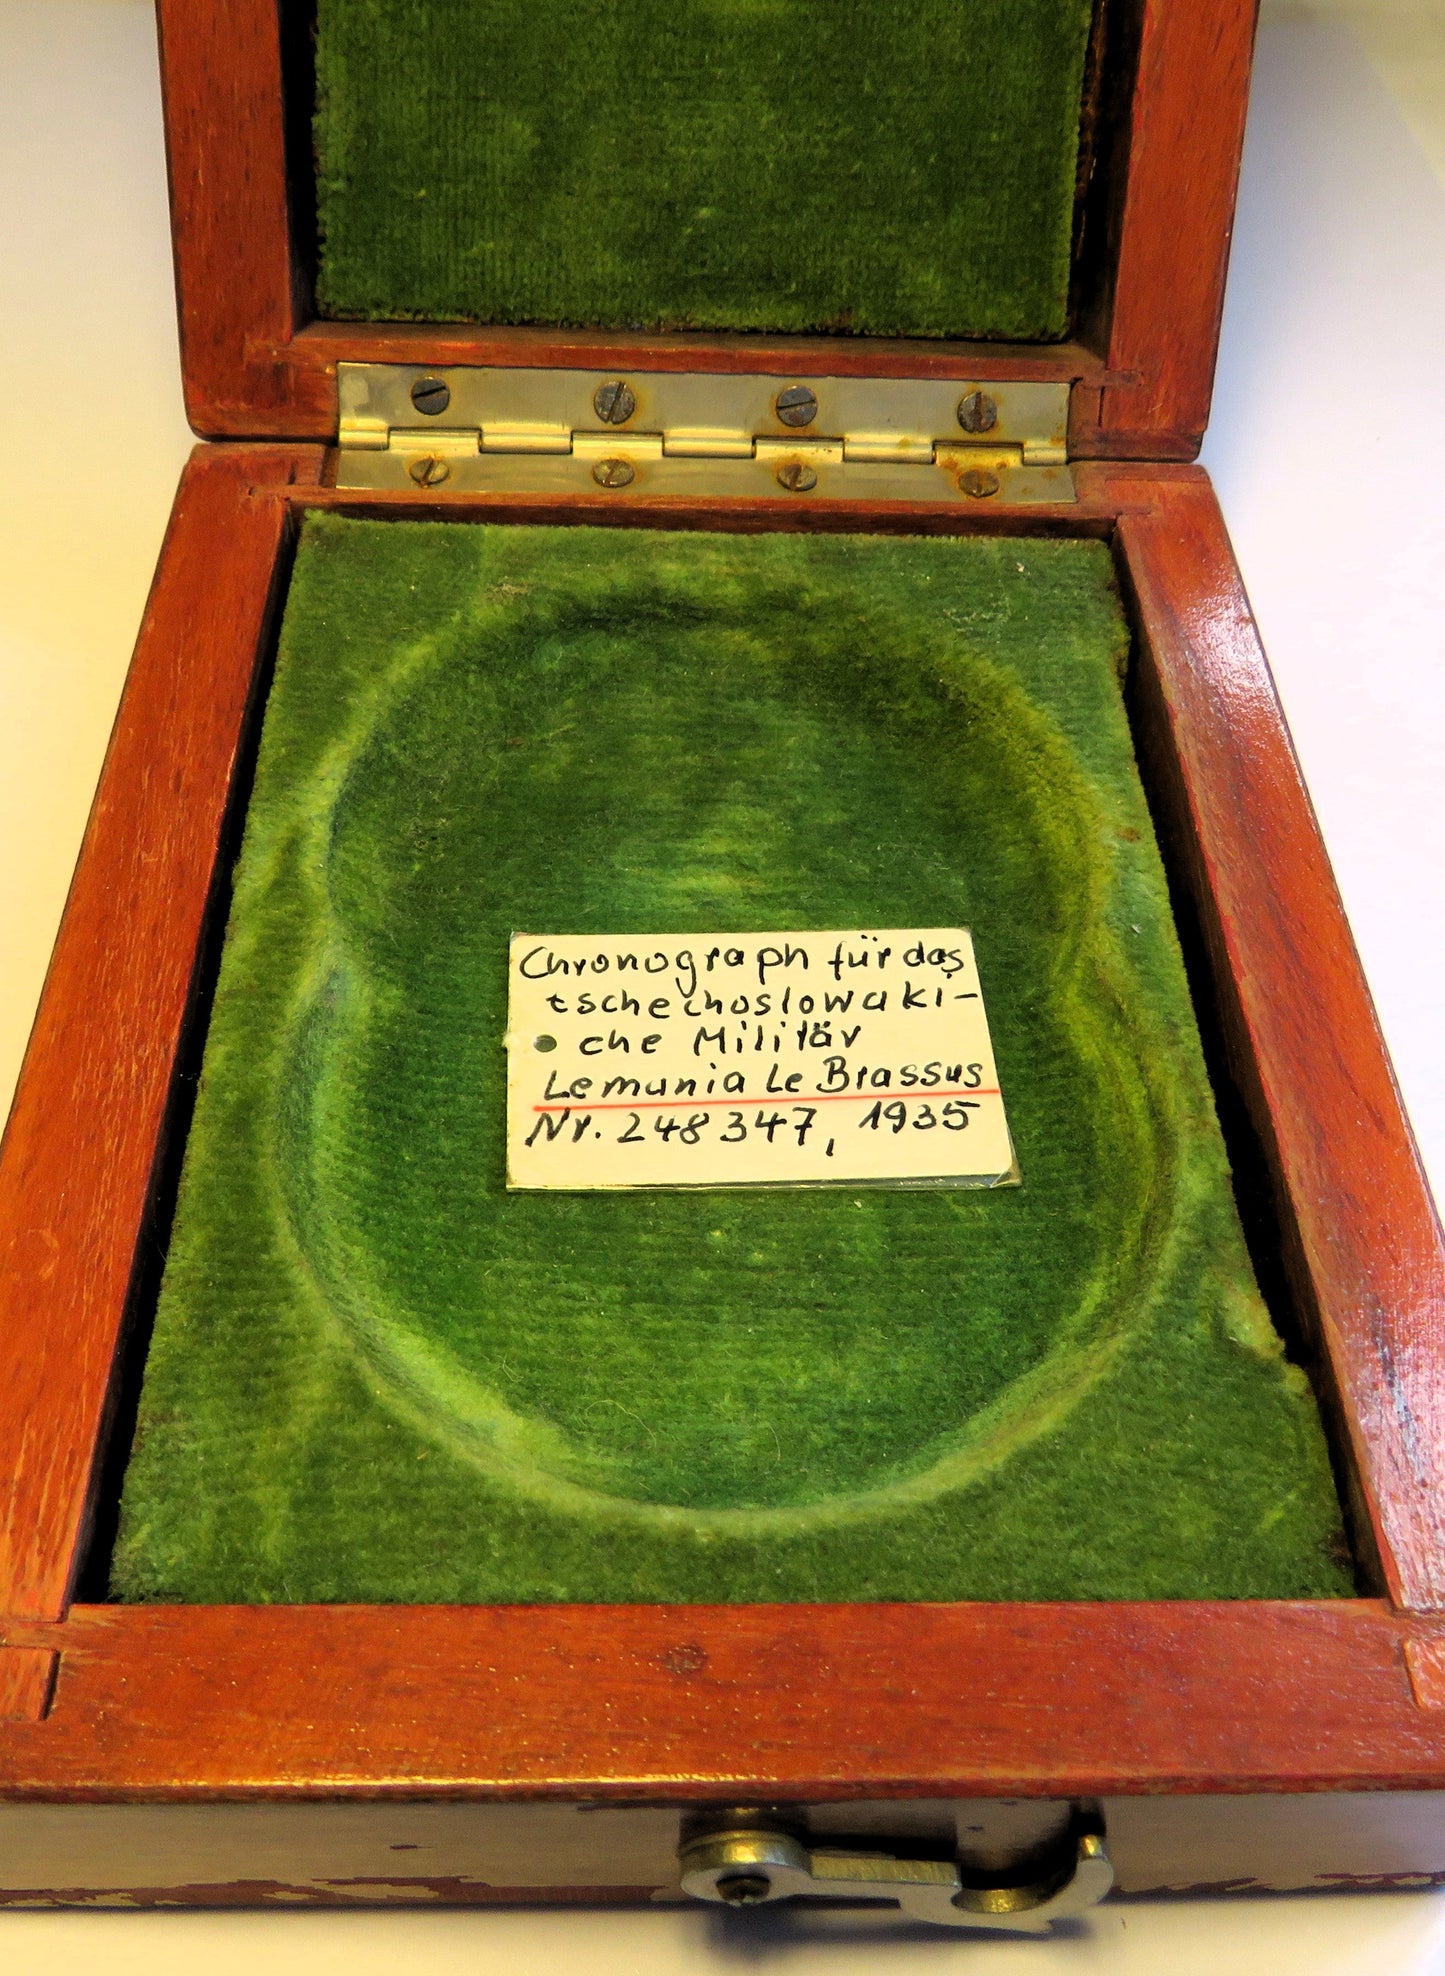 Chronograph für das
tschechoslowaki-
• che Militär
Lemania Le Brassus
Nr. 248347, 1935